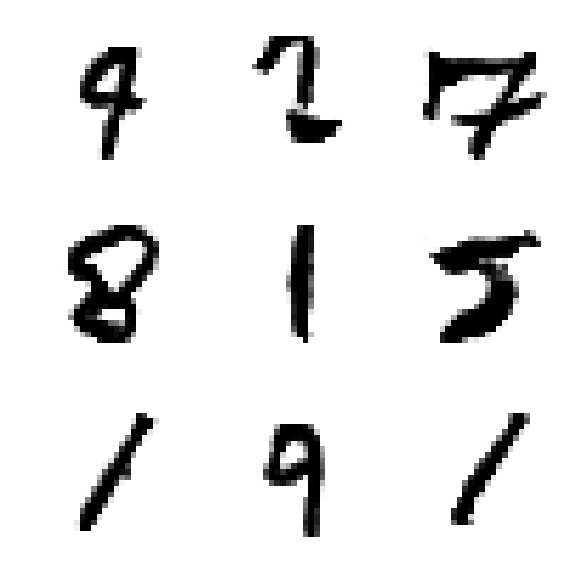 9 2 7
8 1 5
1 9 1